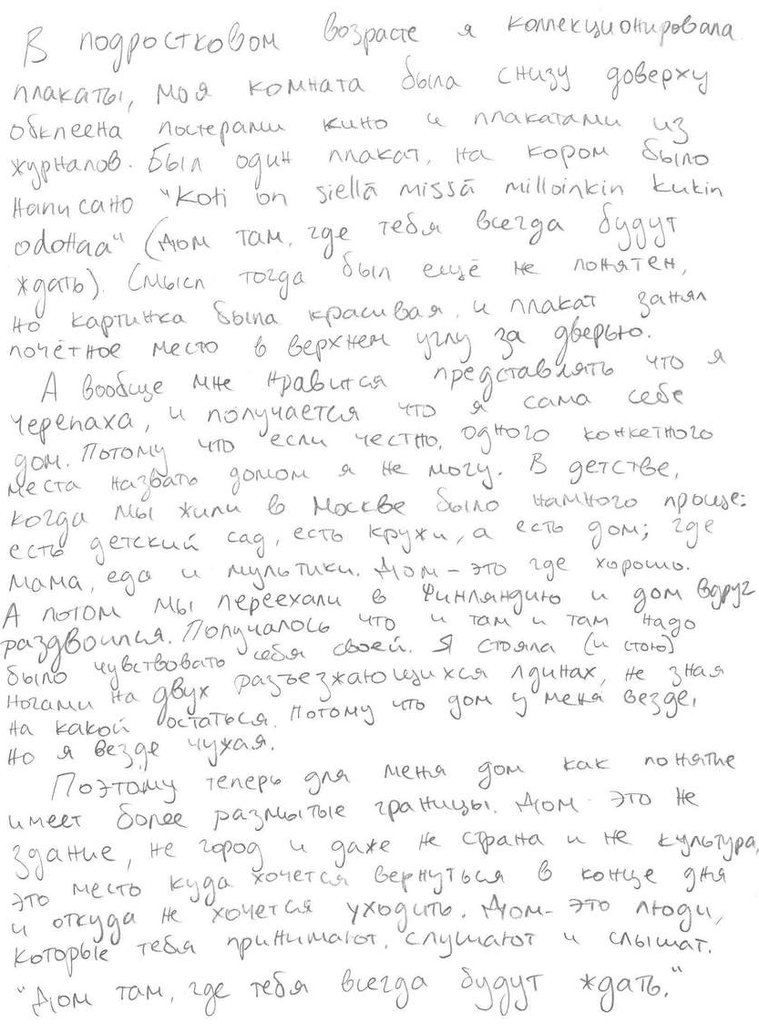 В подростковом возрасте я коллекционировала
плакаты, моя комната была снизу доверху
обклеена постерами кино и плакатами из
журналов. Был один плакат, на кором было
написано "Koti on siellä missä milloinkin kukin
odottaa" (Дом там, где тебя всегда будут
ждать). Смысл тогда был ещё не понятен,
но картинка была красивая и плакат занял
почётное место в верхнем углу за дверью.
А вообще мне нравится представлять что я
черепаха, и получается что я сама себе
дом. Потому что если честно, одного конкетного
места назвать домом я не могу. В детстве,
когда мы жили в Москве было намного проще:
есть детский сад, есть кружи, а есть дом; где
мама, еда и мультики. Дом – это где хорошо.
А потом мы переехали в Финляндию и дом вдруг
раздвоился. Получалось что и там и там надо
было чувствовать себя своей. Я стояла (и стою)
ногами на двух разъезжающихся льдинах, не зная
на какой остаться. Потому что дом у меня везде,
но я везде чужая.
Поэтому теперь для меня дом как понятие
имеет более размытые границы. Дом - это не
здание, не город и даже не страна и не культура,
это место куда хочется вернуться в конце дня
и откуда не хочется уходить. Дом – это люди,
которые тебя принимают, слушают и слышат.
"Дом там, где тебя всегда будут ждать."